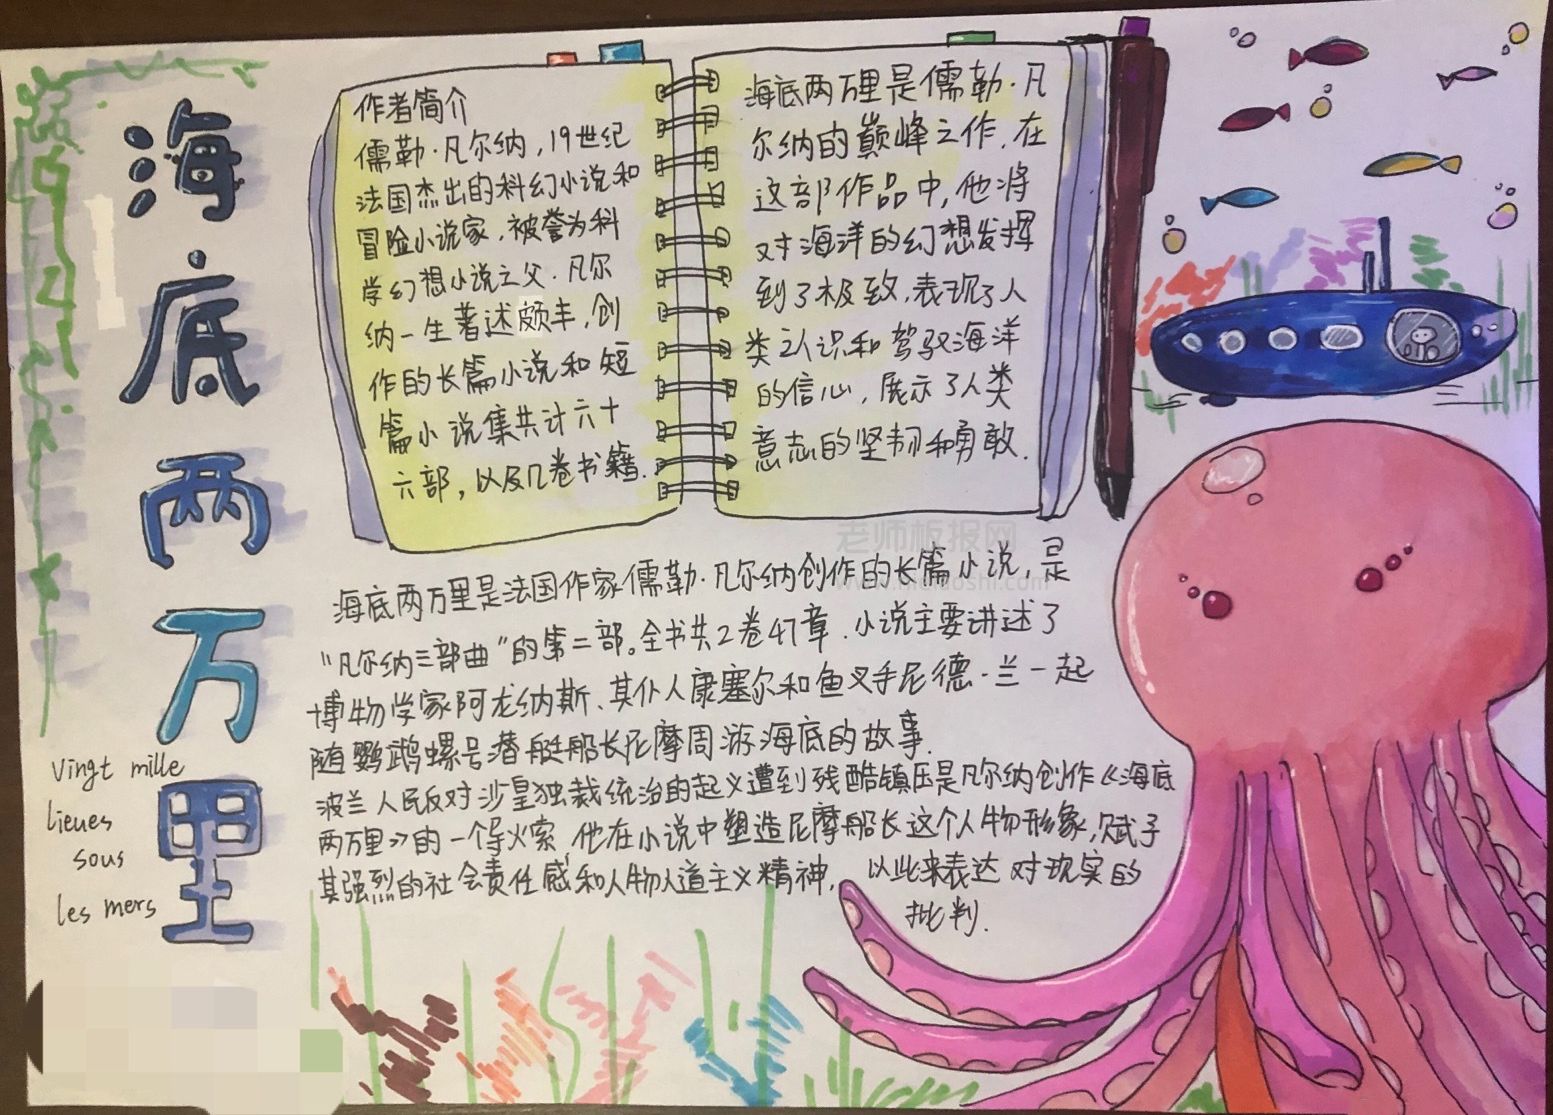 海底两万里
Vingt mille
lieues
sous
les mers
作者简介
儒勒·凡尔纳,19世纪
法国杰出的科幻小说和
冒险小说家,被誉为科
学幻想小说之父.凡尔
纳一生著述颇丰,创
作的长篇小说和短
篇小说集共计六十
六部,以及几卷书籍.
海底两万里是儒勒·凡
尔纳的巅峰之作.在
这部作品中,他将
对海洋的幻想发挥
到了极致,表现了人
类认识和驾驭海洋
的信心,展示了人类
意志的坚韧和勇敢.
海底两万里是法国作家儒勒·凡尔纳创作的长篇小说,是
"凡尔纳三部曲"的第二部。全书共2卷47章.小说主要讲述了
博物学家阿龙纳斯、其仆人康塞尔和鱼叉手尼德·兰一起
随鹦鹉螺号潜艇船长尼摩周游海底的故事.
波兰人民反对沙皇独裁统治的起义遭到残酷镇压是凡尔纳创作《海底
两万里》的一个导火索.他在小说中塑造尼摩船长这个人物形象,赋予
其强烈的社会责任感和人物人道主义精神, 以此来表达对现实的
批判.
老师板报网